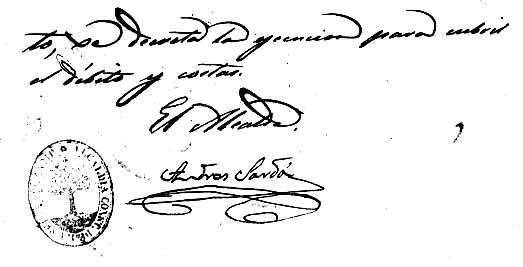 to, se decreta la ejecucion para cubrir
el débito y costas.
El Alcalde.
Andres Sardón
ALCALDIA CONST